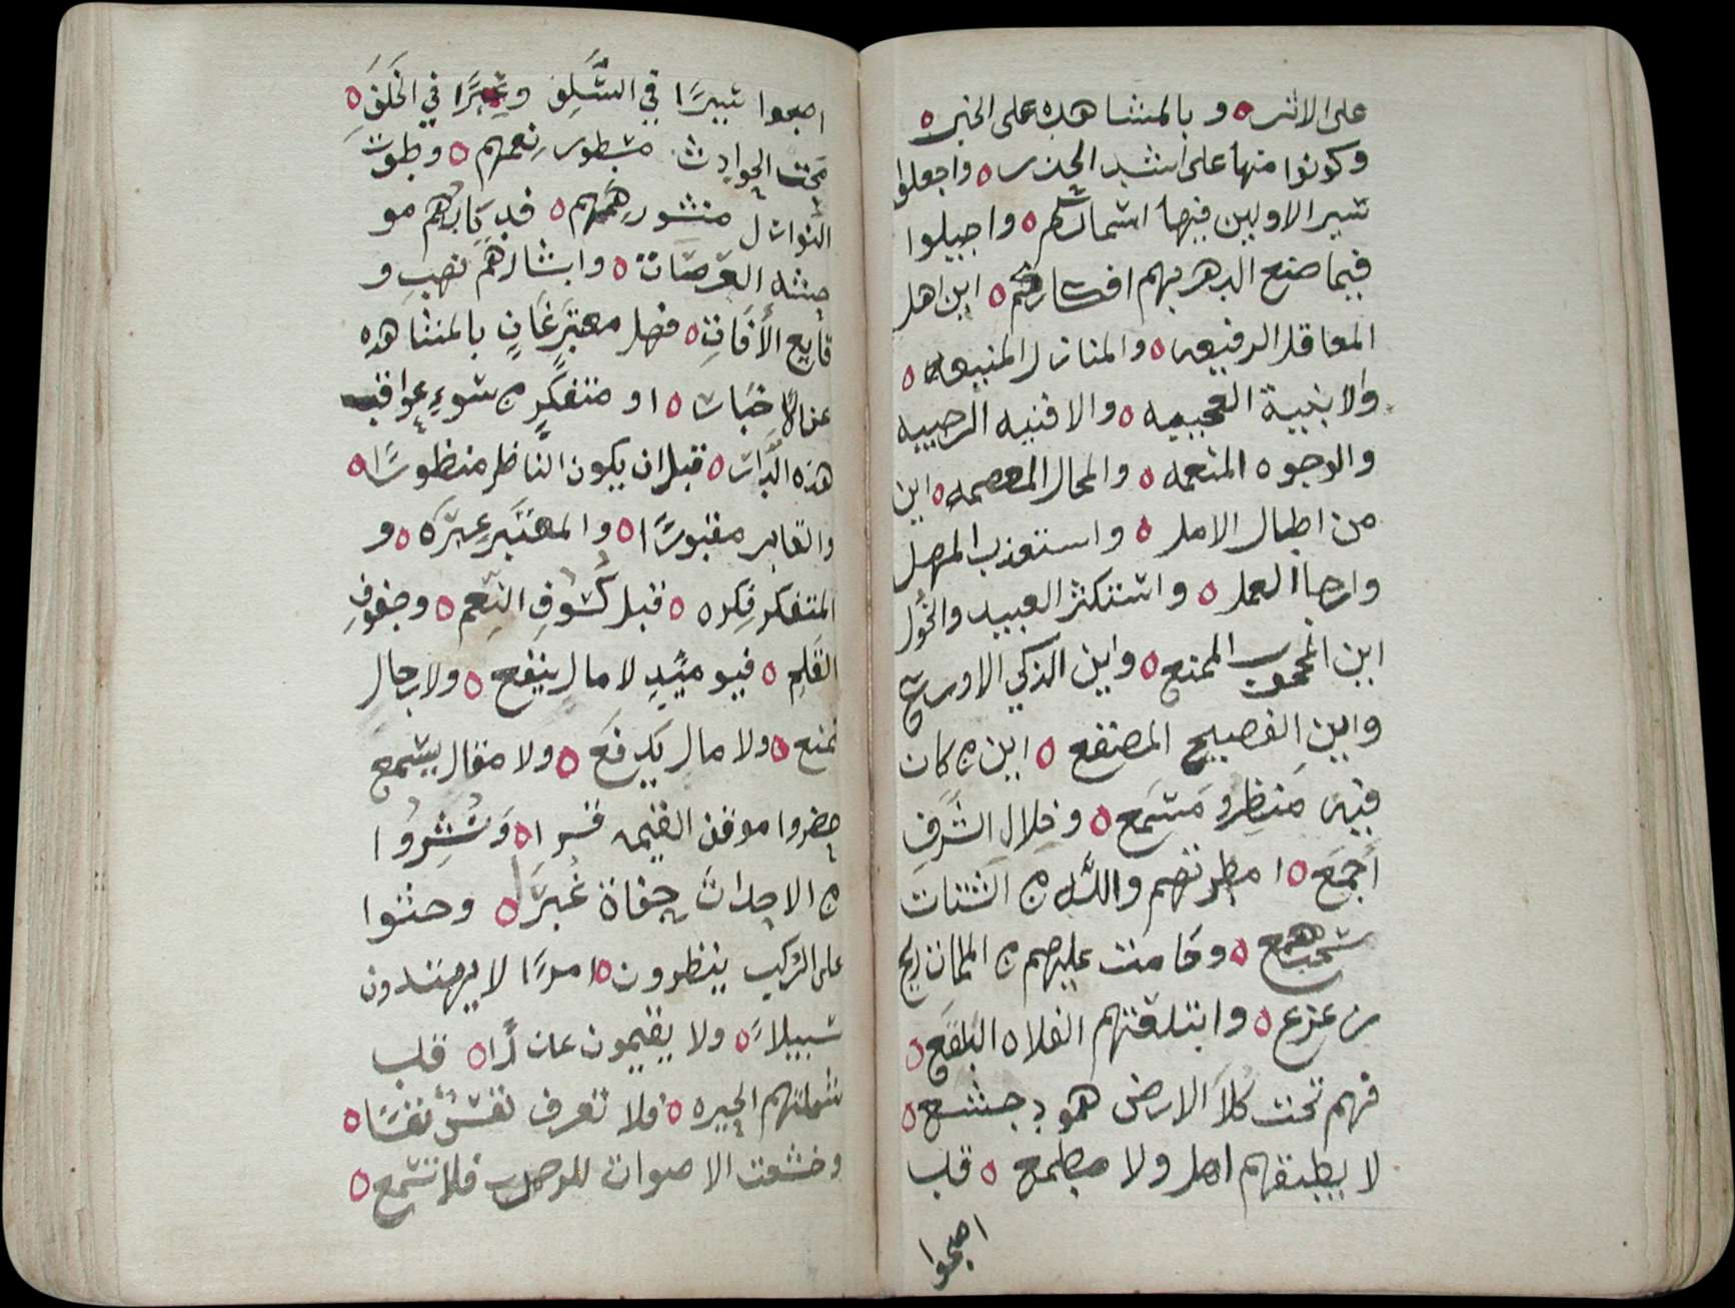 على الاثر ه و بالمشاهده على الخبر ه
وكونوا منها على اشد الحذر ه واجعلوا
سير الاولين فيها اسماركم ه واجيلوا
فيما صنع الدهر بهم افكاركم ه اين اهل
المعاقل الرفيعه ه والمنازل المنيعه ه
والابنية العجيبه ه والافنيه الرحيبه
والوجوه المنعمه ه والمحال المعصمه ه اين
من اطال الامل ه واستعذب المهل
وارجا العمل ه واستكثر العبيد والخول
اين المحجوب الممنع ه واين الذكي الاورع
واين الفصيح المصقع ه اين من كان
فيه منظر ومسمع ه وخلال الشرف
اجمع ه امطرتهم والله من الشتات
سحب همع ه وقامت عليهم من المان ريح
زعزع ه وابتلعتهم الفلاه البلقع ه
فهم تحت كلا الارض همود جشع ه
لا يطبقهم اهل ولا مطمع ه قد
اصبحوا
اصبحوا سيرا في السلف وعبرا في الخلف ه
محت الحوادث سطور نعمهم ه وطوت
النوازل منشور هممهم ه فديارهم مو
حشه العرصات ه وابشارهم نهب و
قايع الأفات ه فهل معتبر غان بالمشاهده
عن الاخبار ه او متفكر من سوء عواقب
هذه الدار ه قبل ان يكون الناظر منظورا ه
والقابر مقبورا ه والمعتبر عبره ه و
المتفكر فكره ه قبل كسوف النعم ه وجفوف
القلم ه فيوميذ لا مال ينفع ه ولا رجال
تمنع ه ولا مال يدفع ه ولا مقال يسمع
حضروا موقف القيمه قسرا ه ونشروا
من الاجداث حفاة غبرا ه وحثوا
على الركب ينظرون امرا ه لا يهتدون
سبيلا ه ولا يقيمون عذرا ه قد
شملتهم الحيره ه فلا تعرف نفس نفسا ه
وخشعت الاصوات للرحمن فلا تسمع ه